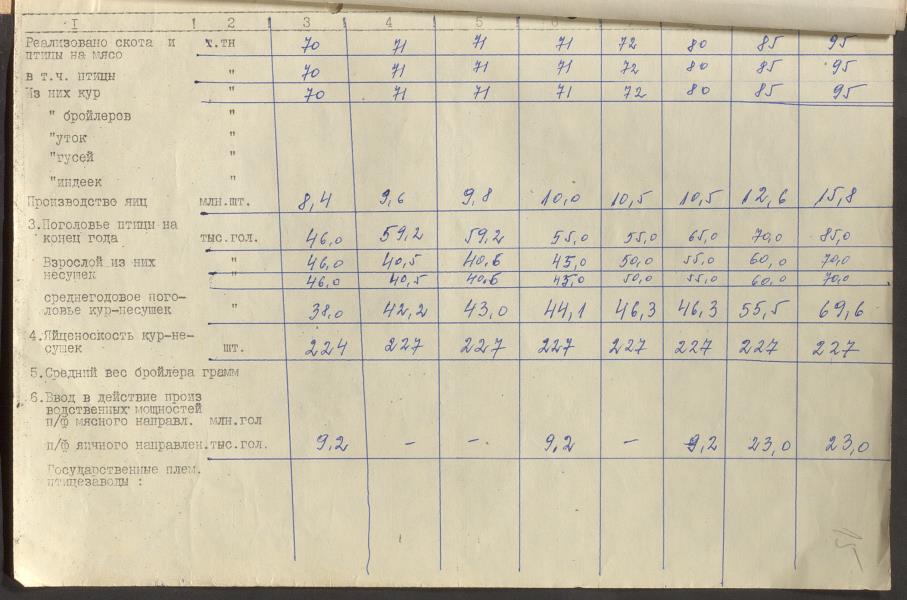 I 2 3 4 5 6
Реализовано скота и т.тн 70 71 71 71 72 80 85 95
птицы на мясо
в т.ч. птицы " 70 71 71 71 72 80 85 95
Из них кур " 70 71 71 71 72 80 85 95
" бройлеров "
"уток "
"гусей
"индеек "
Производство яиц млн.шт. 8,4 9,6 9,8 10,0 10,5 10,5 12,6 15,8
3.Поголовье птицы на
конец года тыс.гол. 46,0 59,2 59,2 55,0 55,0 65,0 70,0 85,0
Взрослой из них " 46,0 40,5 40,6 45,0 50,0 55,0 60,0 70,0
несушек " 46,0 40,5 40,6 45,0 50,0 55,0 60,0 70,0
среднегодовое пого-
ловье кур-несушек " 38,0 42,2 43,0 44,1 46,3 46,3 55,5 69,6
4.Яйценоскость кур-не-
сушек шт. 224 227 227 227 227 227 227 227
5.Средний вес бройлера грамм
6.Ввод в действие произ
водственных мощностей
п/ф мясного направл. млн.гол
п/ф яичного направлен.тыс.гол. 9,2 - - 9,2 - 9,2 23,0 23,0
Государственные плем.
птицезаводы :
15